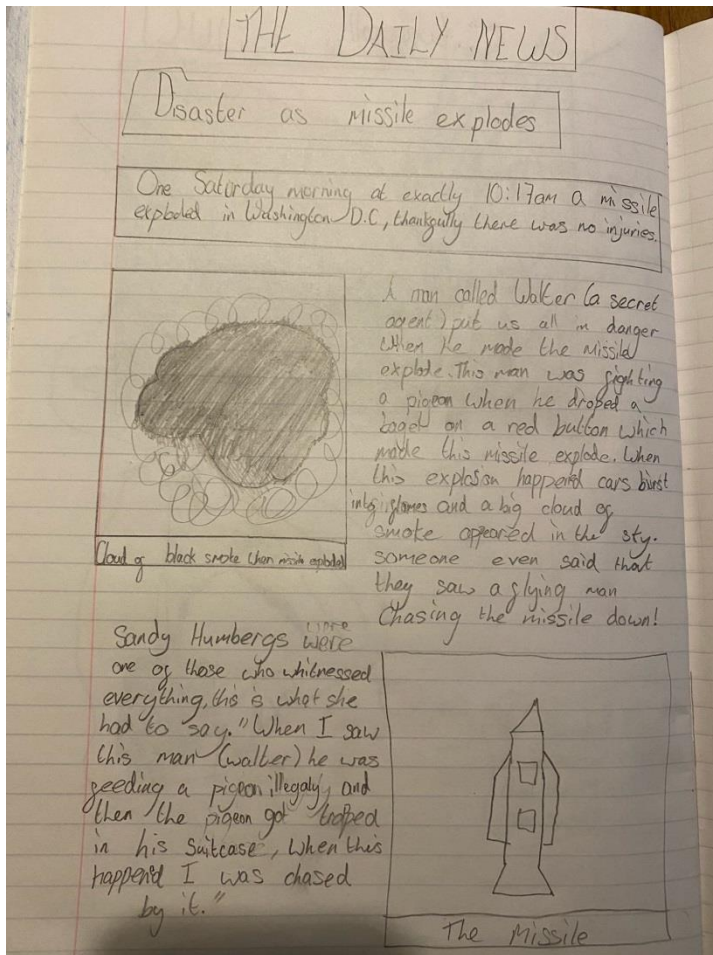 THE DAILY NEWS
Disaster as missile explodes
One Saturday morning at exactly 10:17am a missile
exploded in Washington D.C, thankfully there was no injuries.
A man called Walter (a secret
agent) put us all in danger
when he made the missile
explode. This man was fighting
a pigeon when he droped a
bagel on a red button which
made this missile explode. When
this explosion happend cars burst
into flames and a big cloud of
smoke appeared in the sky.
someone even said that
they saw a flying man
Chasing the missile down!
Cloud of black smoke when missile exploded
Sandy Humbergs were
one of those who whitnessed
everything, this is what she
had to say. "When I saw
this man (walter) he was
feeding a pigeon illegaly and
then the pigeon got traped
in his suitcase, when this
happend I was chased
by it."
The Missile